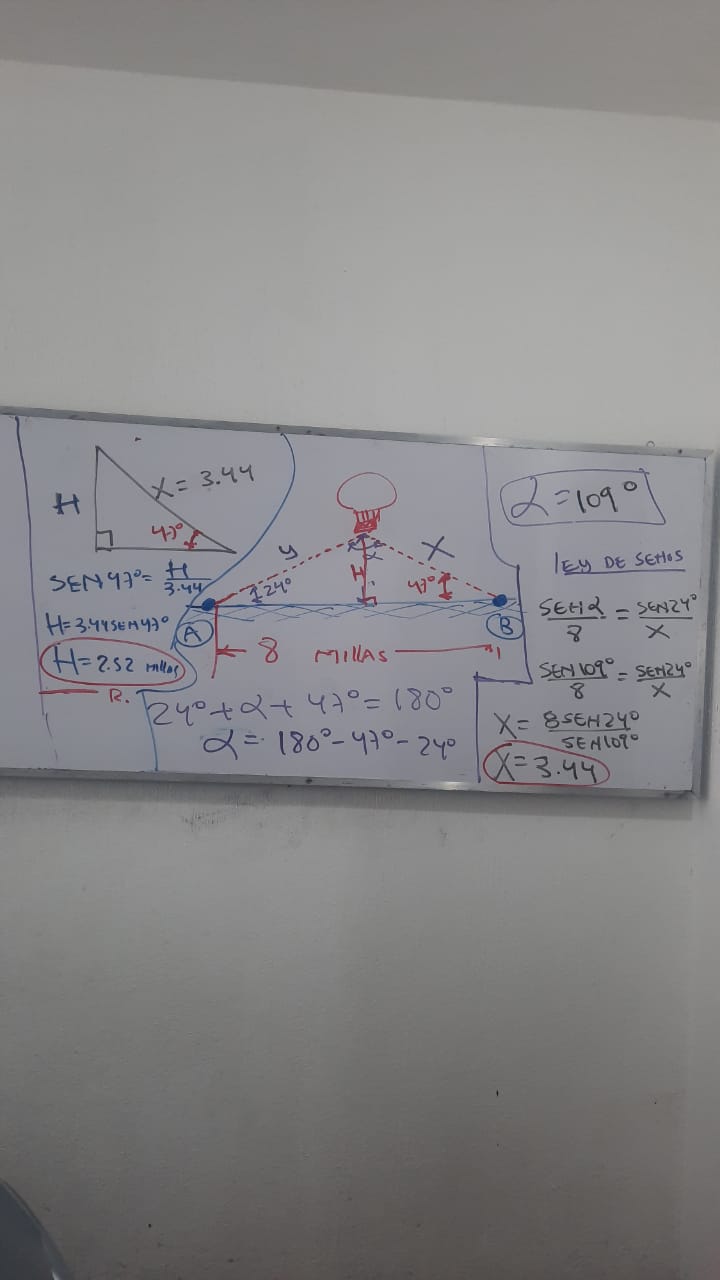 H
X = 3.44
47°
SEN 47° = H/3.44
H = 3.44 SEN 47°
H = 2.52 millas
R.
y
X
24°
H
47°
A
B
8 MILLAS
24° + α + 47° = 180°
α = 180° - 47° - 24°
α = 109°
LEY DE SENOS
SEN α/8 = SEN 24°/X
SEN 109°/8 = SEN 24°/X
X = 8 SEN 24°/SEN 109°
X = 3.44